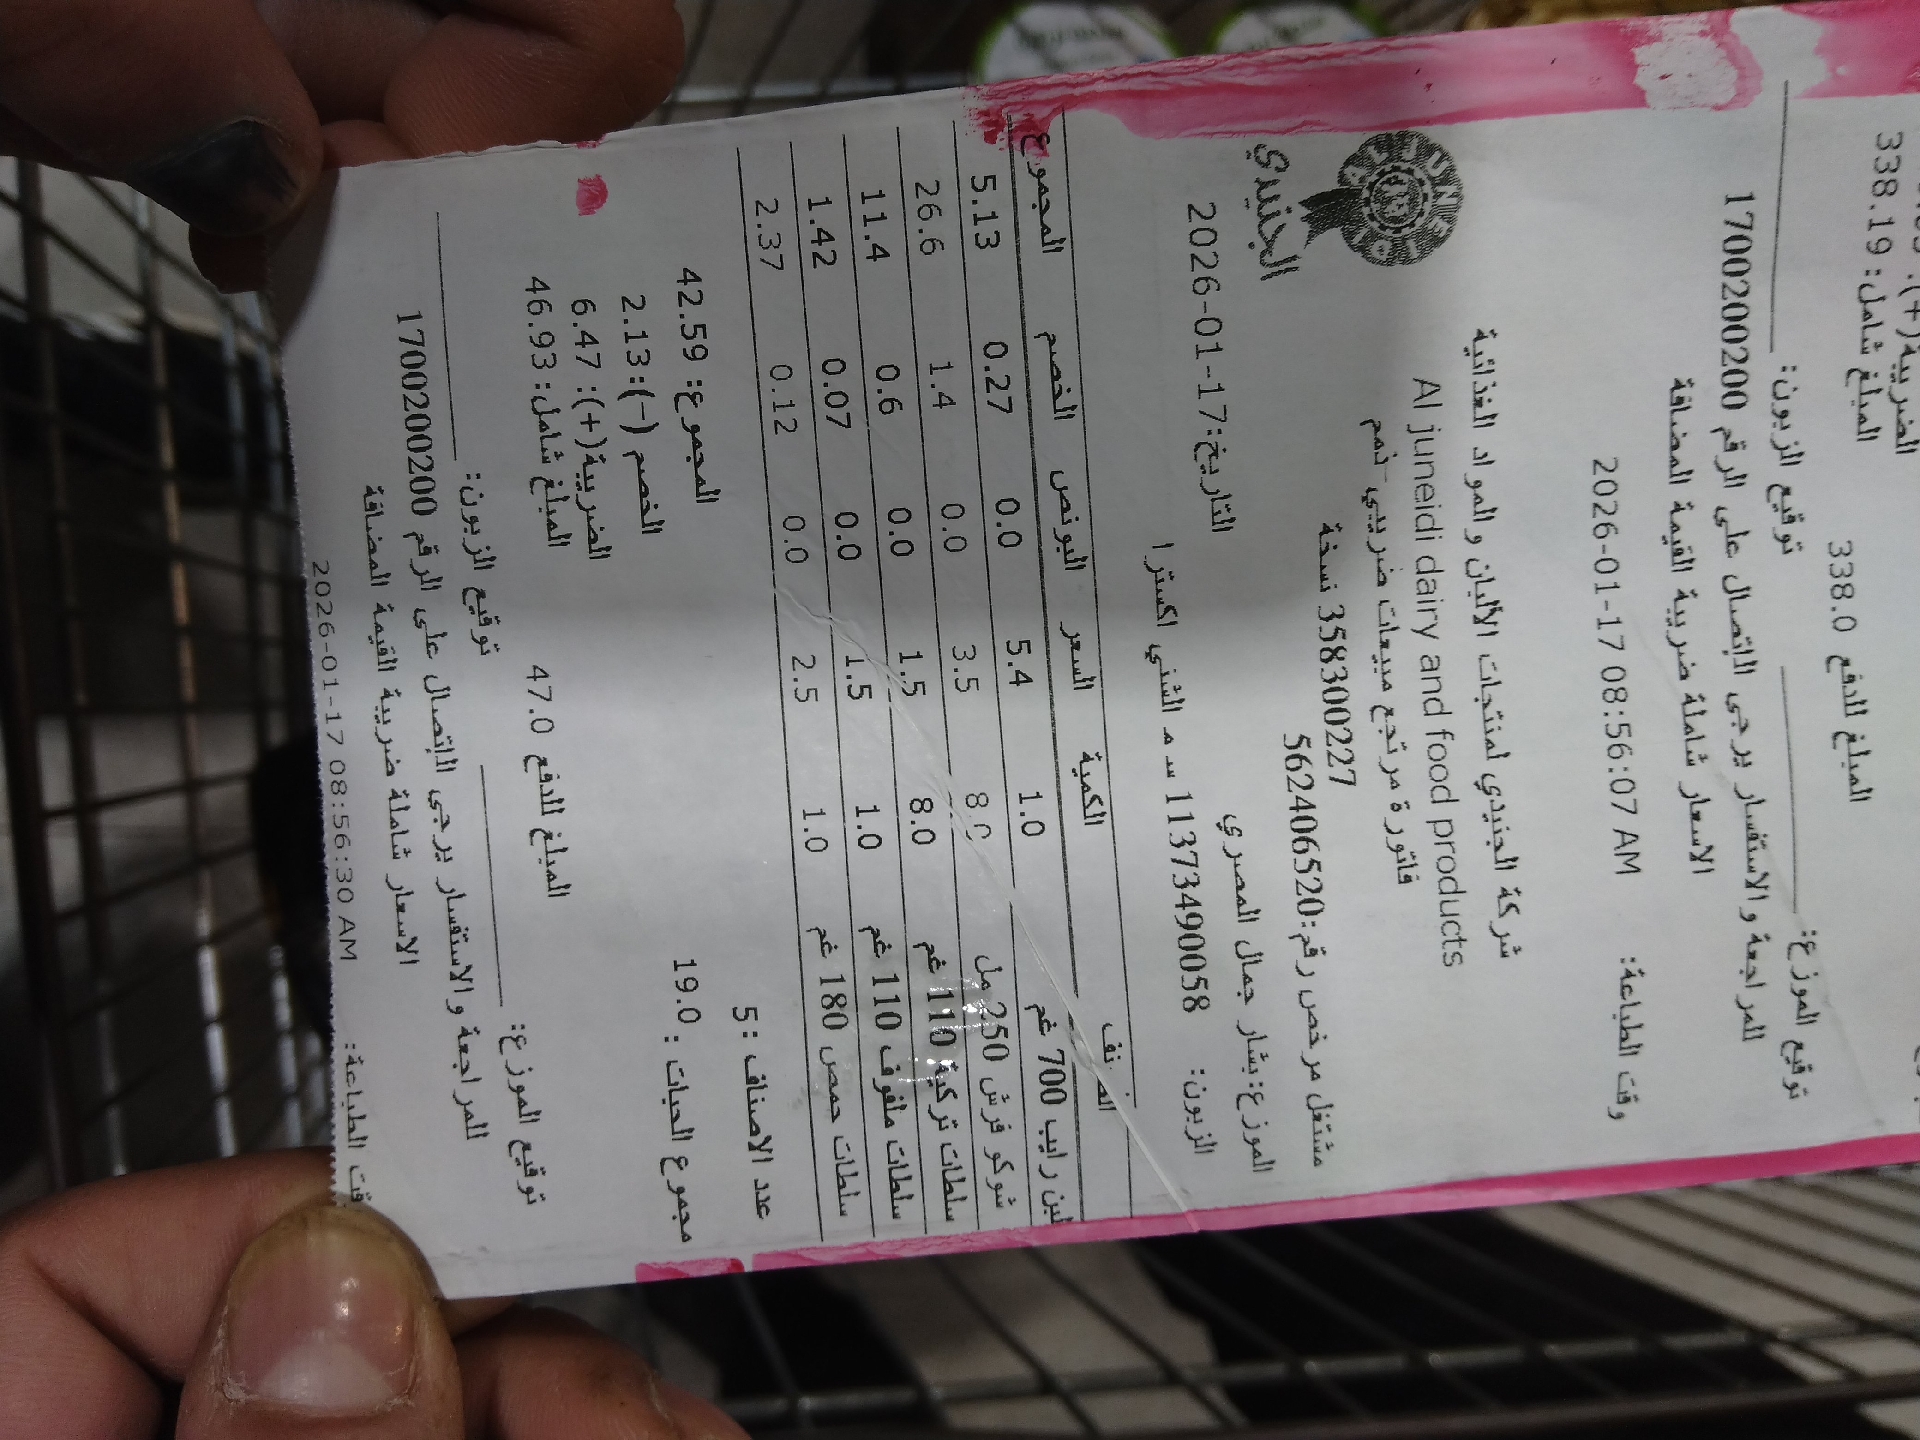 الضريبة(+):
المبلغ شامل: 338.19
المبلغ للدفع 338.0
توقيع الموزع: توقيع الزبون:
للمراجعة والاستفسار يرجى الاتصال على الرقم 1700200200
الاسعار شاملة ضريبة القيمة المضافة
وقت الطباعة: 2026-01-17 08:56:07 AM
شركة الجنيدي لمنتجات الألبان والمواد الغذائية
Al juneidi dairy and food products
فاتورة مرتجع مبيعات ضريبي -ذمم
35830022​7 نسخة
مشتغل مرخص رقم:562406520
الجنيدي
الموزع:بشار جمال المصري التاريخ:2026-01-17
الزبون: 11373490058 س م الشني اكسترا
الصنف الكمية السعر البونص الخصم المجموع
لبن رايب 700 غم 1.0 5.4 0.0 0.27 5.13
شوكو فرش 250 مل 8.0 3.5 0.0 1.4 26.6
سلطات تركية 110 غم 8.0 1.5 0.0 0.6 11.4
سلطات ملفوف 110 غم 1.0 1.5 0.0 0.07 1.42
سلطات حمص 180 غم 1.0 2.5 0.0 0.12 2.37
عدد الاصناف :5
مجموع الحبات : 19.0 المجموع: 42.59
الخصم (-):2.13
الضريبة(+): 6.47
المبلغ للدفع 47.0 المبلغ شامل: 46.93
توقيع الموزع: توقيع الزبون:
للمراجعة والاستفسار يرجى الاتصال على الرقم 1700200200
الاسعار شاملة ضريبة القيمة المضافة
وقت الطباعة: 2026-01-17 08:56:30 AM